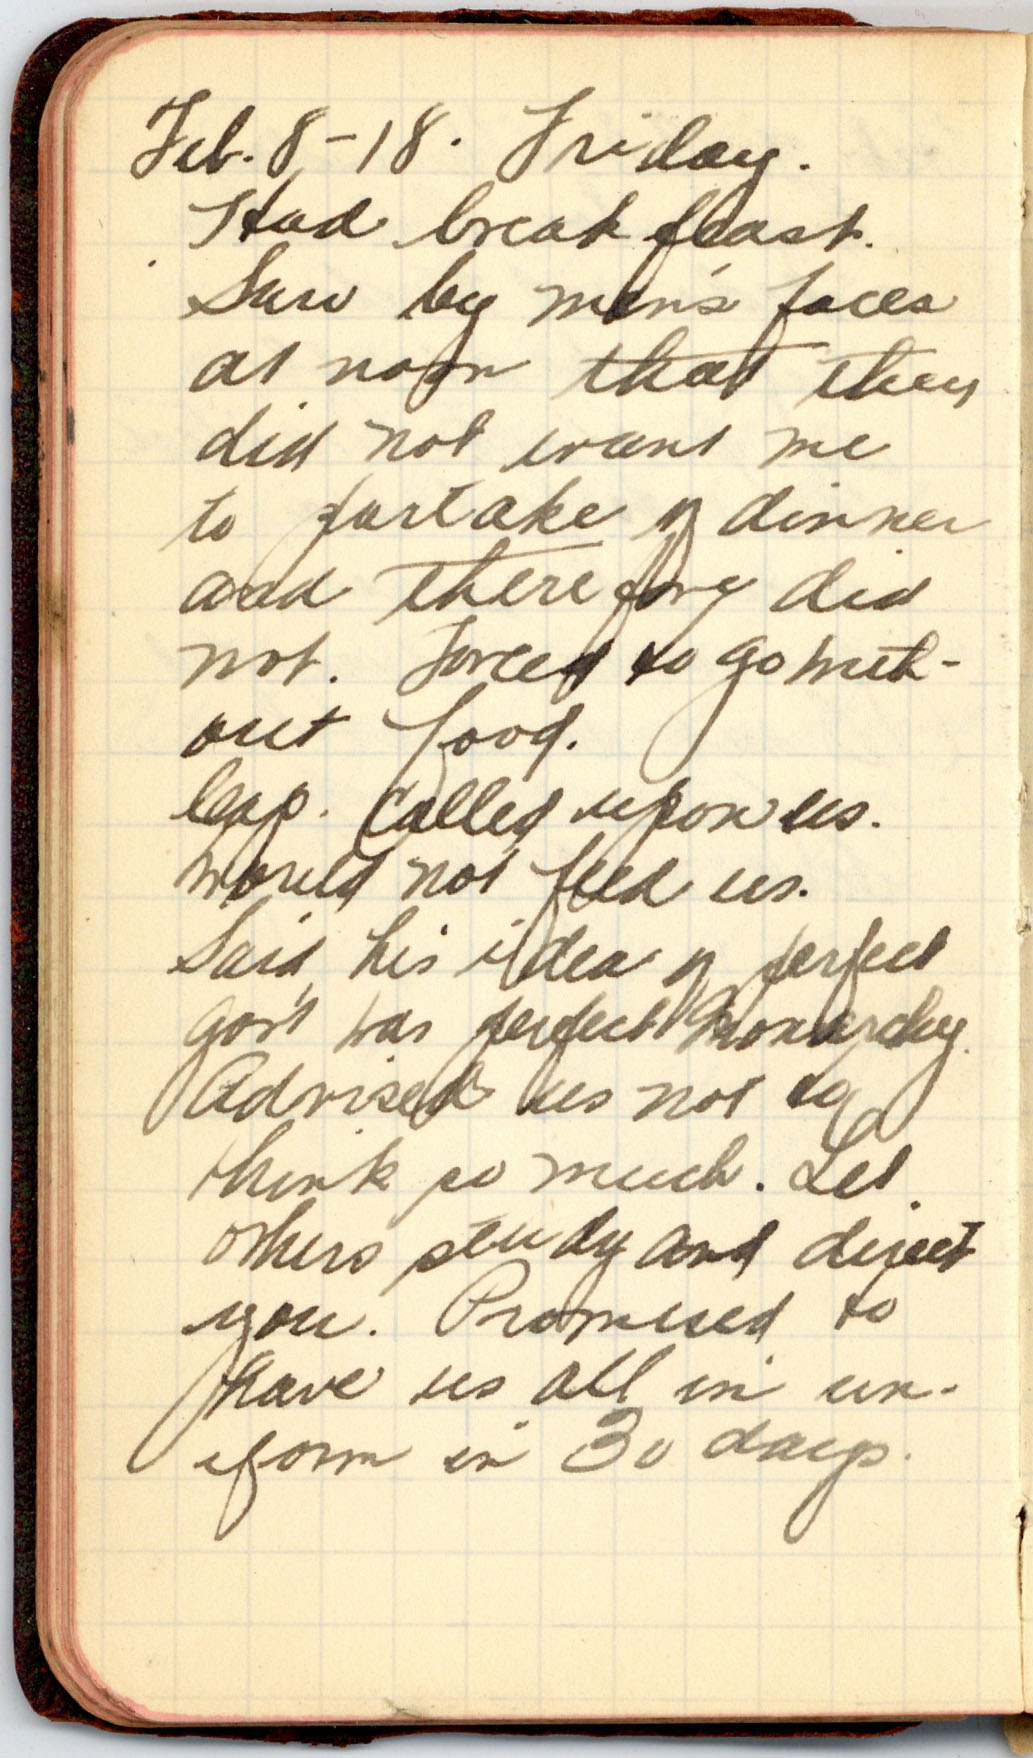 Feb. 8-18. Friday.
Had break feast.
Saw by men's faces
at noon that they
did not want me
to partake of dinner
and therefore did
not. Forced to go with-
out food.
Cap. Called upon us.
Would not feed us.
Said his idea of perfect
gov't was perfect Monarchy.
Advised us not to
think so much. Let
others study and direct
you. Promised to
have us all in un-
iform in 30 days.